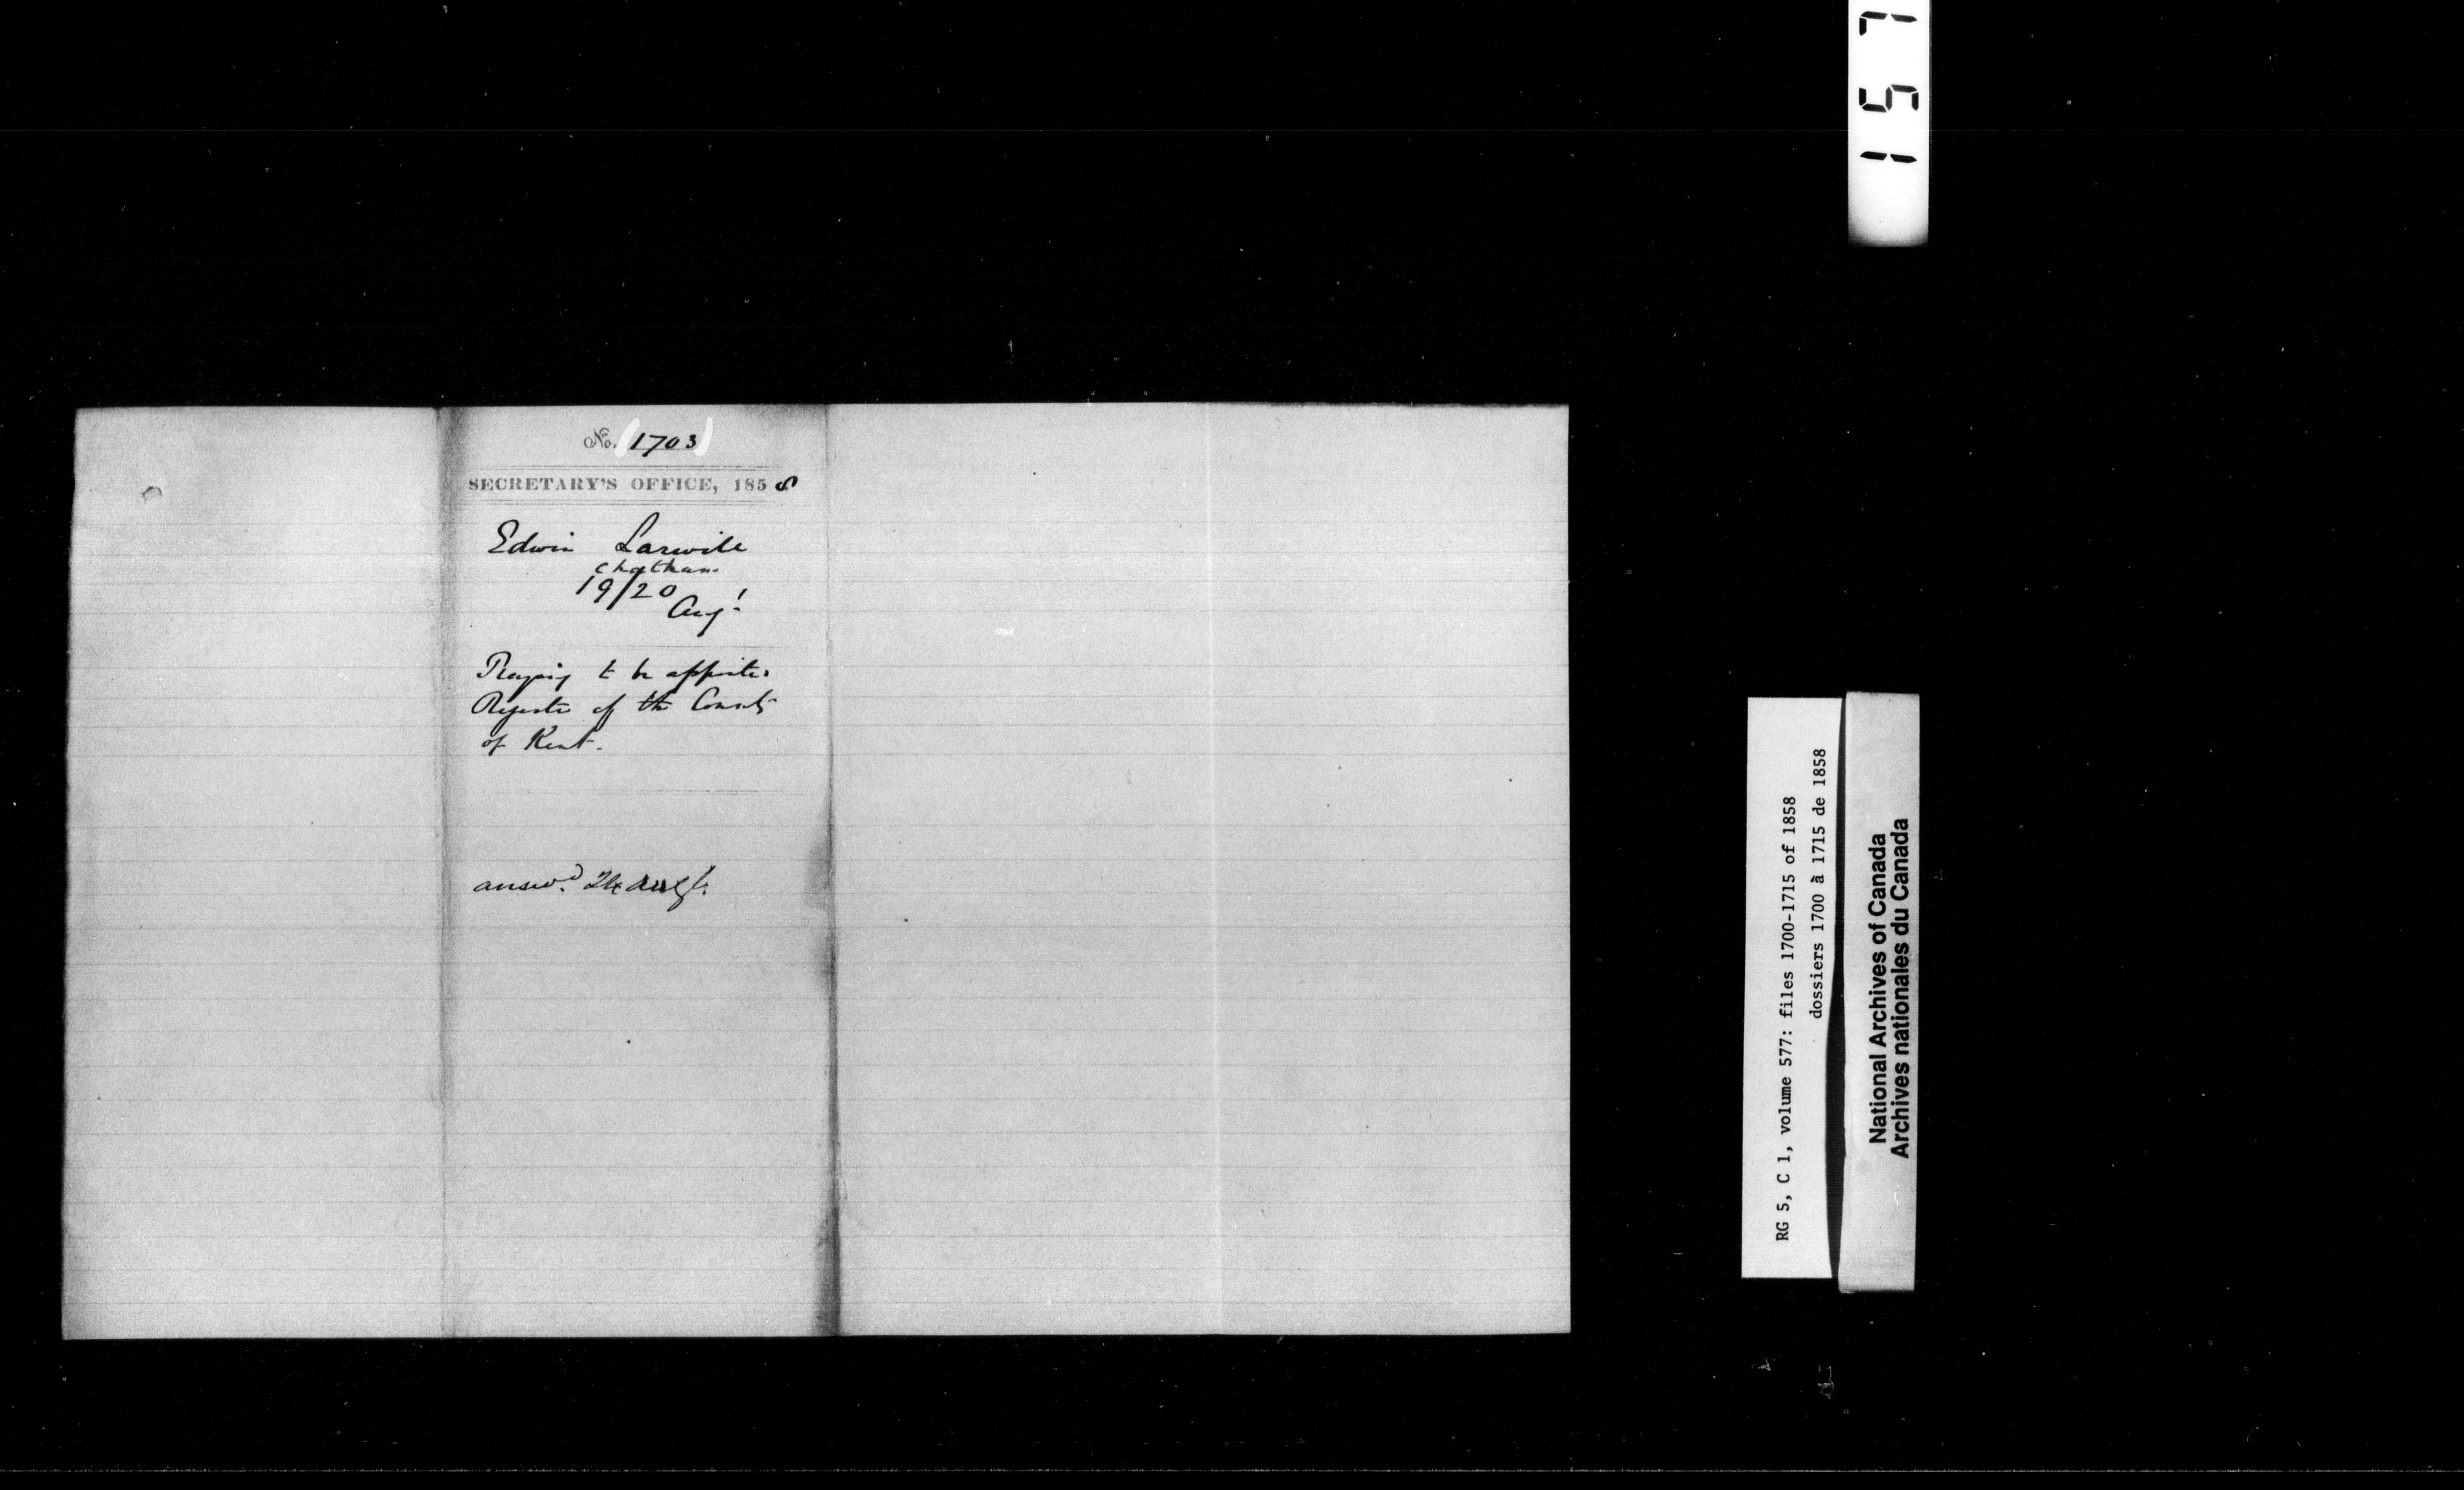 1 5 7
No. 1703
SECRETARY'S OFFICE, 1858
Edwin Larwill
Chatham
19/20
Augt
Praying to be appointed
Register of the County
of Kent.
answd. 24 Augt.
RG 5, C 1, volume 577: files 1700-1715 of 1858
dossiers 1700 à 1715 de 1858
National Archives of Canada
Archives nationales du Canada